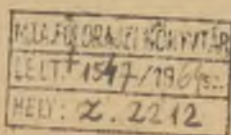 M.T.A. FÖLDRAJZI KÖNYVTÁR
LELT.: 1547/1964 sz.
HELY: Z. 2212